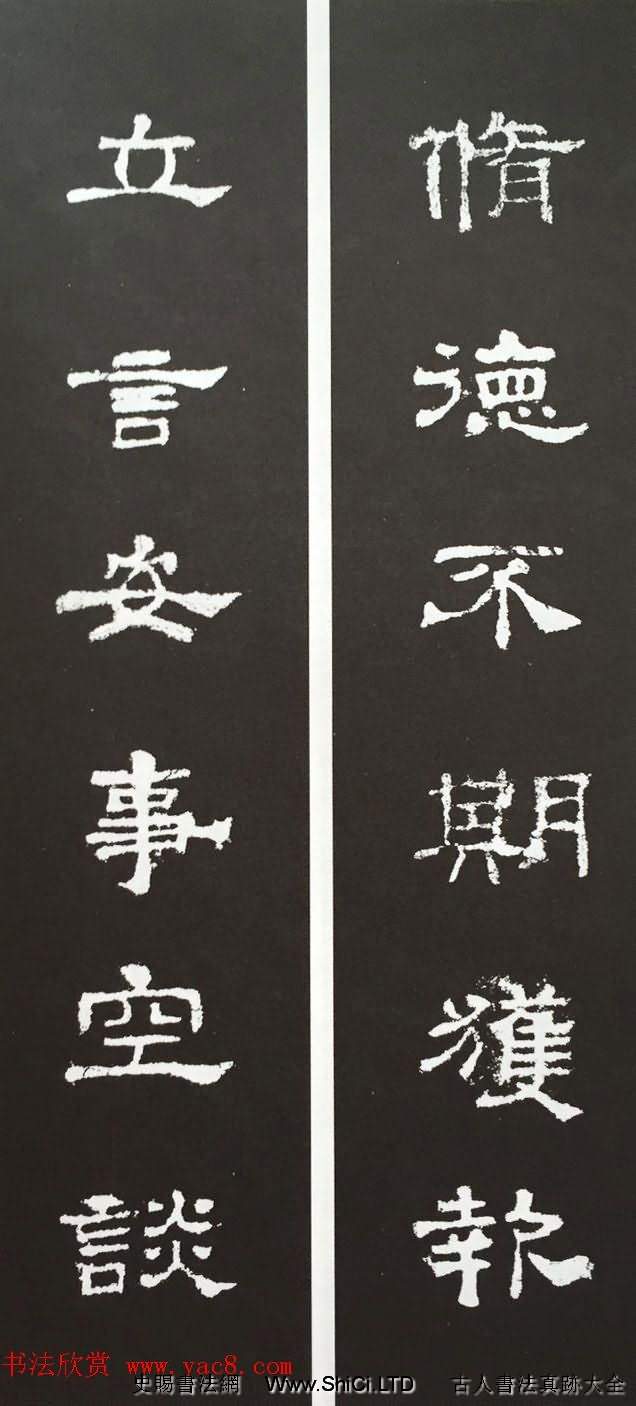 脩德不期獲報
立言安事空談
书法欣赏 www.yac8.com
史賜書法網 Www.ShiCi.LTD 古人書法真跡大全